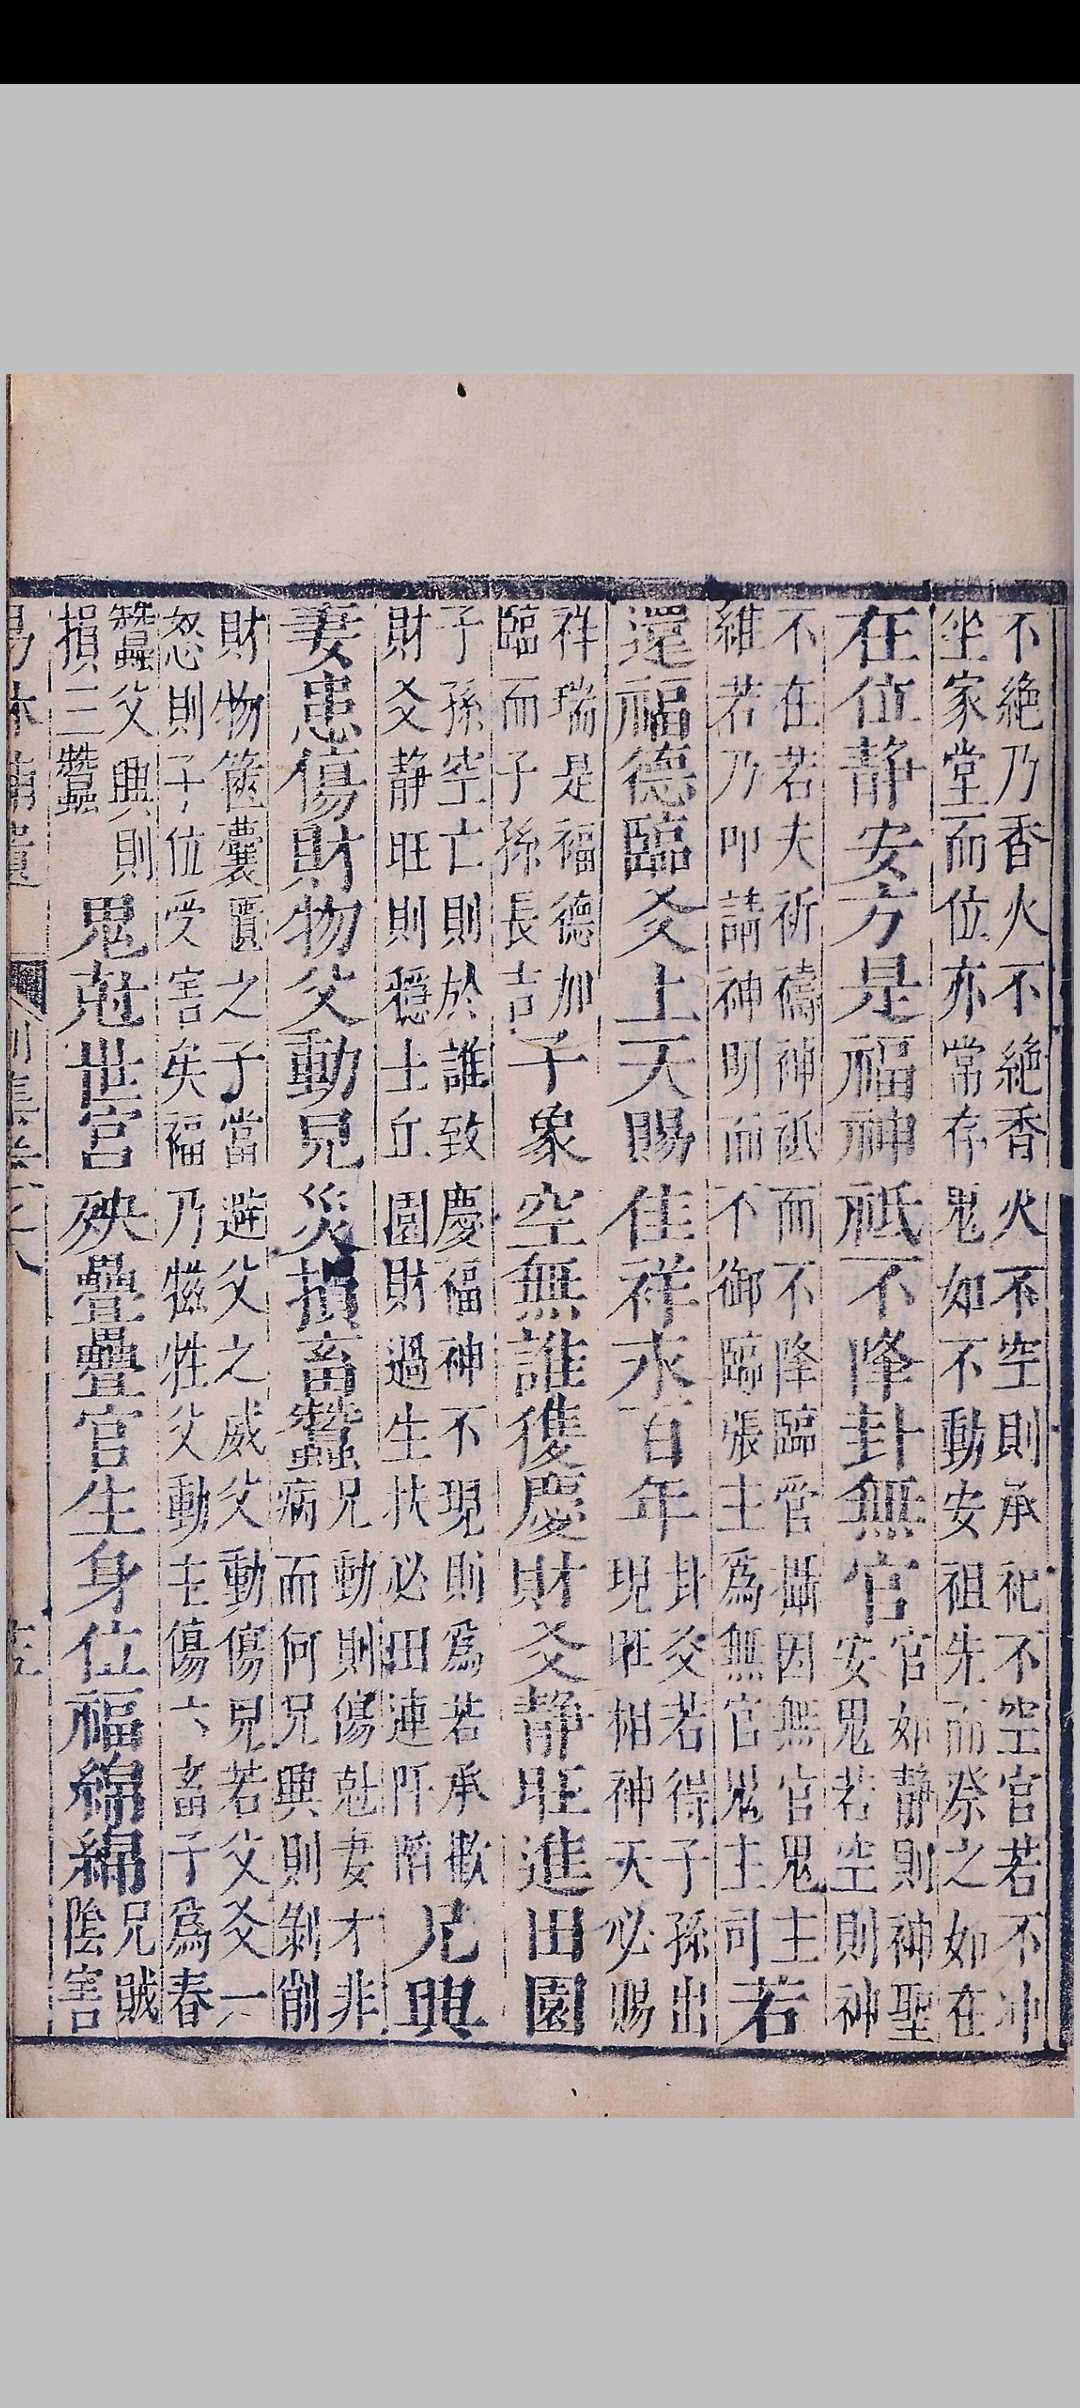 不絶乃香火不絶香火不空則承祀不空官若不冲
坐家堂而位亦常存鬼如不動安祖先而祭之如在
在位静安方是福神祇不降卦無官
官如静則神聖
安鬼若空則神
不在若夫祈禱神祇而不降臨官攝因無官鬼主
維若乃叩請神明而不御臨張主爲無官鬼主司
若
還福德臨爻上天賜佳祥永百年
卦爻若得子孫出
現旺相神天必賜
祥瑞是福德加
臨而子孫長吉
子象空無誰獲慶財爻静旺進田園
子孫空亡則於誰致慶福神不現則爲若承歡
財爻静旺則穩士丘園財過生扶必田連阡陌
兄興
妻患傷財物父動兒災損畜蠶
兄動則傷尅妻才非
病而何兄興則剝削
財物篋囊匱之子當避父之威父動傷兒若父爻一
忽則子位受害矣福乃犧牲父動主傷六畜子爲春
蠶父興則
損三蠶
鬼尅世宮殃疊疊官生身位福綿綿
兄賊
陰害